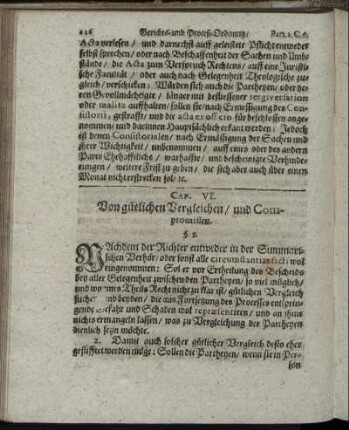 226 Gerichts- und Proceß-Ordnung / Part. 2. C. 6.
Acta verlesen / und darnechst auff geleistete Pflicht entweder
selbst sprechen / oder nach Beschaffenheit der Sachen und Umb-
stände / die Acta zum Verspruch Rechtens / auff eine Juristi-
sche Facultät / oder auch nach Gelegenheit Theologische zu-
gleich / verschicken: Würden sich auch die Partheyen / oder de-
ren Gevollmächtigte / länger mit beflissener tergiversation
oder malitz auffhalten / sollen sie / nach Ermäßigung des Con-
sistorii, gestrafft / und die acta ex officio für beschlossen ange-
nommen / und darinnen Hauptsächlich erkant werden; Jedoch
ist denen Consistorialen / nach Ermäßigung der Sachen und
ihrer Wichtigkeit / unbenommen / auff eines oder des andern
Parts Ehehafftliche / warhaffte / und bescheinigte Verhinde-
rungen / weitere Frist zu geben / die sich aber auch über einen
Monat nicht erstrecken sol / ꝛc.
CAP. VI.
Von gütlichen Vergleichen / und Com-
promissen.
§. 1.
NAchdem der Richter entweder in der Summari-
schen Verhör / oder sonst alle circumstantias facti wol
eingenommen: Sol er vor Ertheilung des Bescheids
bey aller Gelegenheit zwischen den Partheyen / so viel möglich /
und wo eines Theils Recht nicht zu klar ist / gütlichen Vergleich
suchen und beyden / die aus Fortsetzung des Processes entsprin-
gende Gefahr und Schaden wol repræsentiren / und an ihm
nichts ermangeln lassen / was zu Vergleichung der Partheyen
dienlich seyn möchte.
2. Damit auch solcher gütlicher Vergleich desto eher
gestifftet werden möge: Sollen die Partheyen / wenn sie in Per-
son